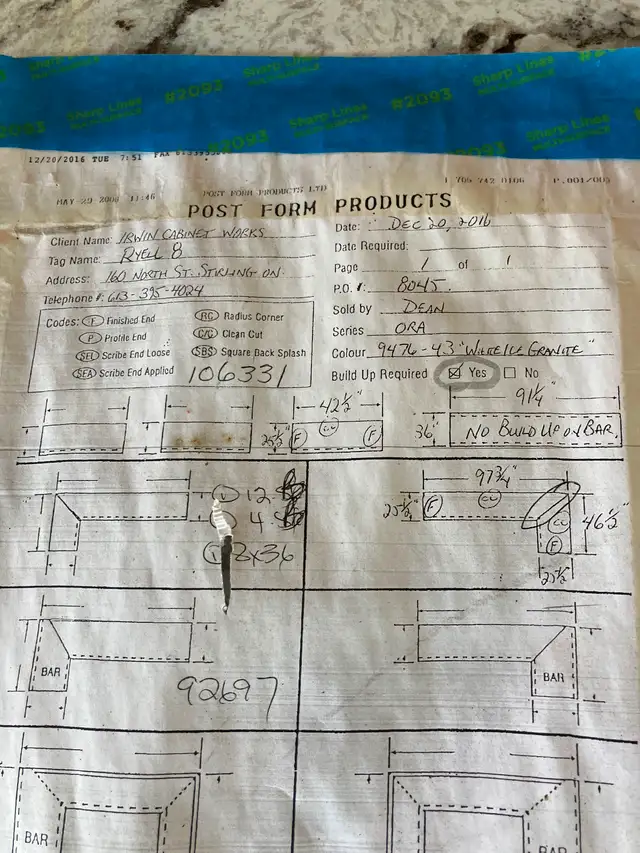 Sharp Lines #2093 Sharp Lines #2093 Sharp Lines
#2093 Sharp Lines #2093 Sharp Lines #2093 Sharp Lines
12/20/2016 TUE 7:51 FAX
MAY-29-2008 11:46 POST FORM PRODUCTS LTD 1 705 742 0106 P.001/003
POST FORM PRODUCTS
Client Name: IRWIN CABINET WORKS
Tag Name: RYELL 8
Address: 160 NORTH ST. STIRLING ON.
Telephone #: 613-395-4024
Date: DEC 20, 2016
Date Required:
Page 1 of 1
P.O. #: 8045.
Sold by DEAN
Series ORA
Colour 9476-43 "WHITE ICE GRANITE"
Build Up Required ☒ Yes ☐ No
Codes: F Finished End
P Profile End
SEL Scribe End Loose
SEA Scribe End Applied
RC Radius Corner
C/C Clean Cut
SBS Square Back Splash
106331
42½"
25½"
F CC F
91¼"
36"
NO BUILD UP ON BAR.
12
4
8x36
97¾"
25½"
F CC
CC
F
46½"
25½"
BAR
92697
BAR
BAR
BAR